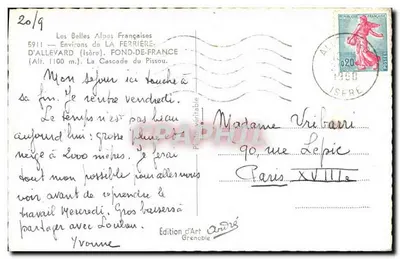 20/9
Les Belles Alpes Françaises
5911 - Environs de LA FERRIÈRE-
D'ALLEVARD (Isère). FOND-DE-FRANCE
(Alt. 1100 m.). La Cascade du Pissou.
Mon séjour ici touche à
sa fin. Je rentre vendredi.
Le temps n'est pas beau
aujourd'hui : grosse pluie et
neige à 2000 mètres. Je ferai
tout mon possible pour aller vous
voir, avant de reprendre le
travail Mercredi. Gros baisers à
partager avec Loulou.
Yvonne
Madame Vribarri
90, rue Lepic
Paris XVIIIe
0,20
1960
ISERE
Edition d'Art André
Grenoble